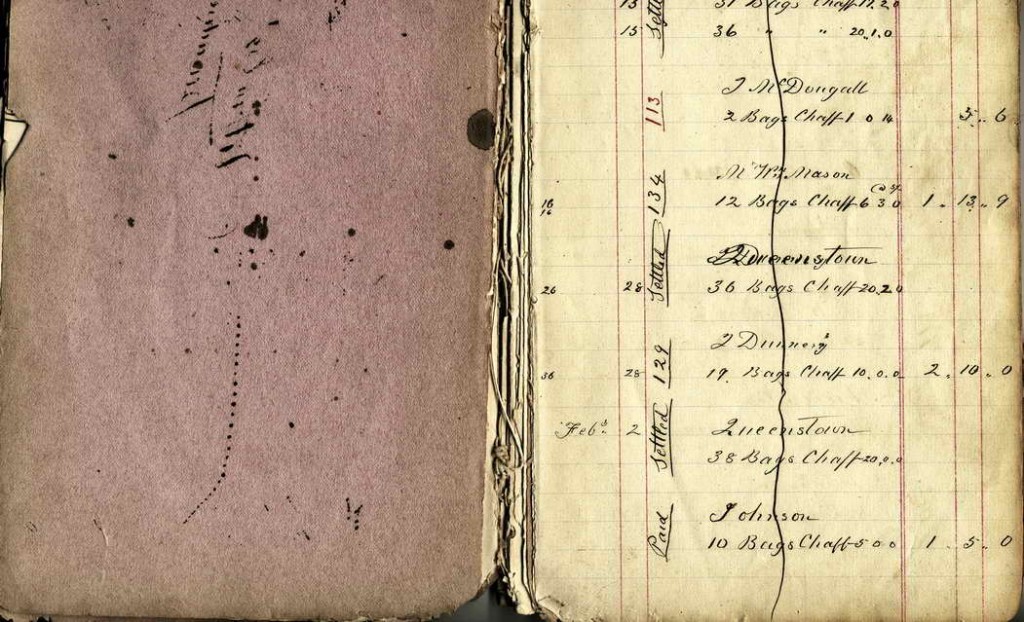 13 Settled 31 Bags Chaff 17.2.0
15 36 " " 20.1.0
J McDougall
113 2 Bags Chaff 1 0 14 5.. 6
Mr Wm Mason
16 134 12 Bags Chaff 6 3 0 1.. 13.. 9
16
Queenstown
26 28 Settled 36 Bags Chaff 20.2.0
J Dunnery's
36 28 129 19. Bags Chaff 10.0.0 2.. 10.. 0
Feby 2 Queenstown
Setttled 38 Bags Chaff 20.0.0
Johnson
Paid 10 Bags Chaff 5 0 0 1.. 5.. 0